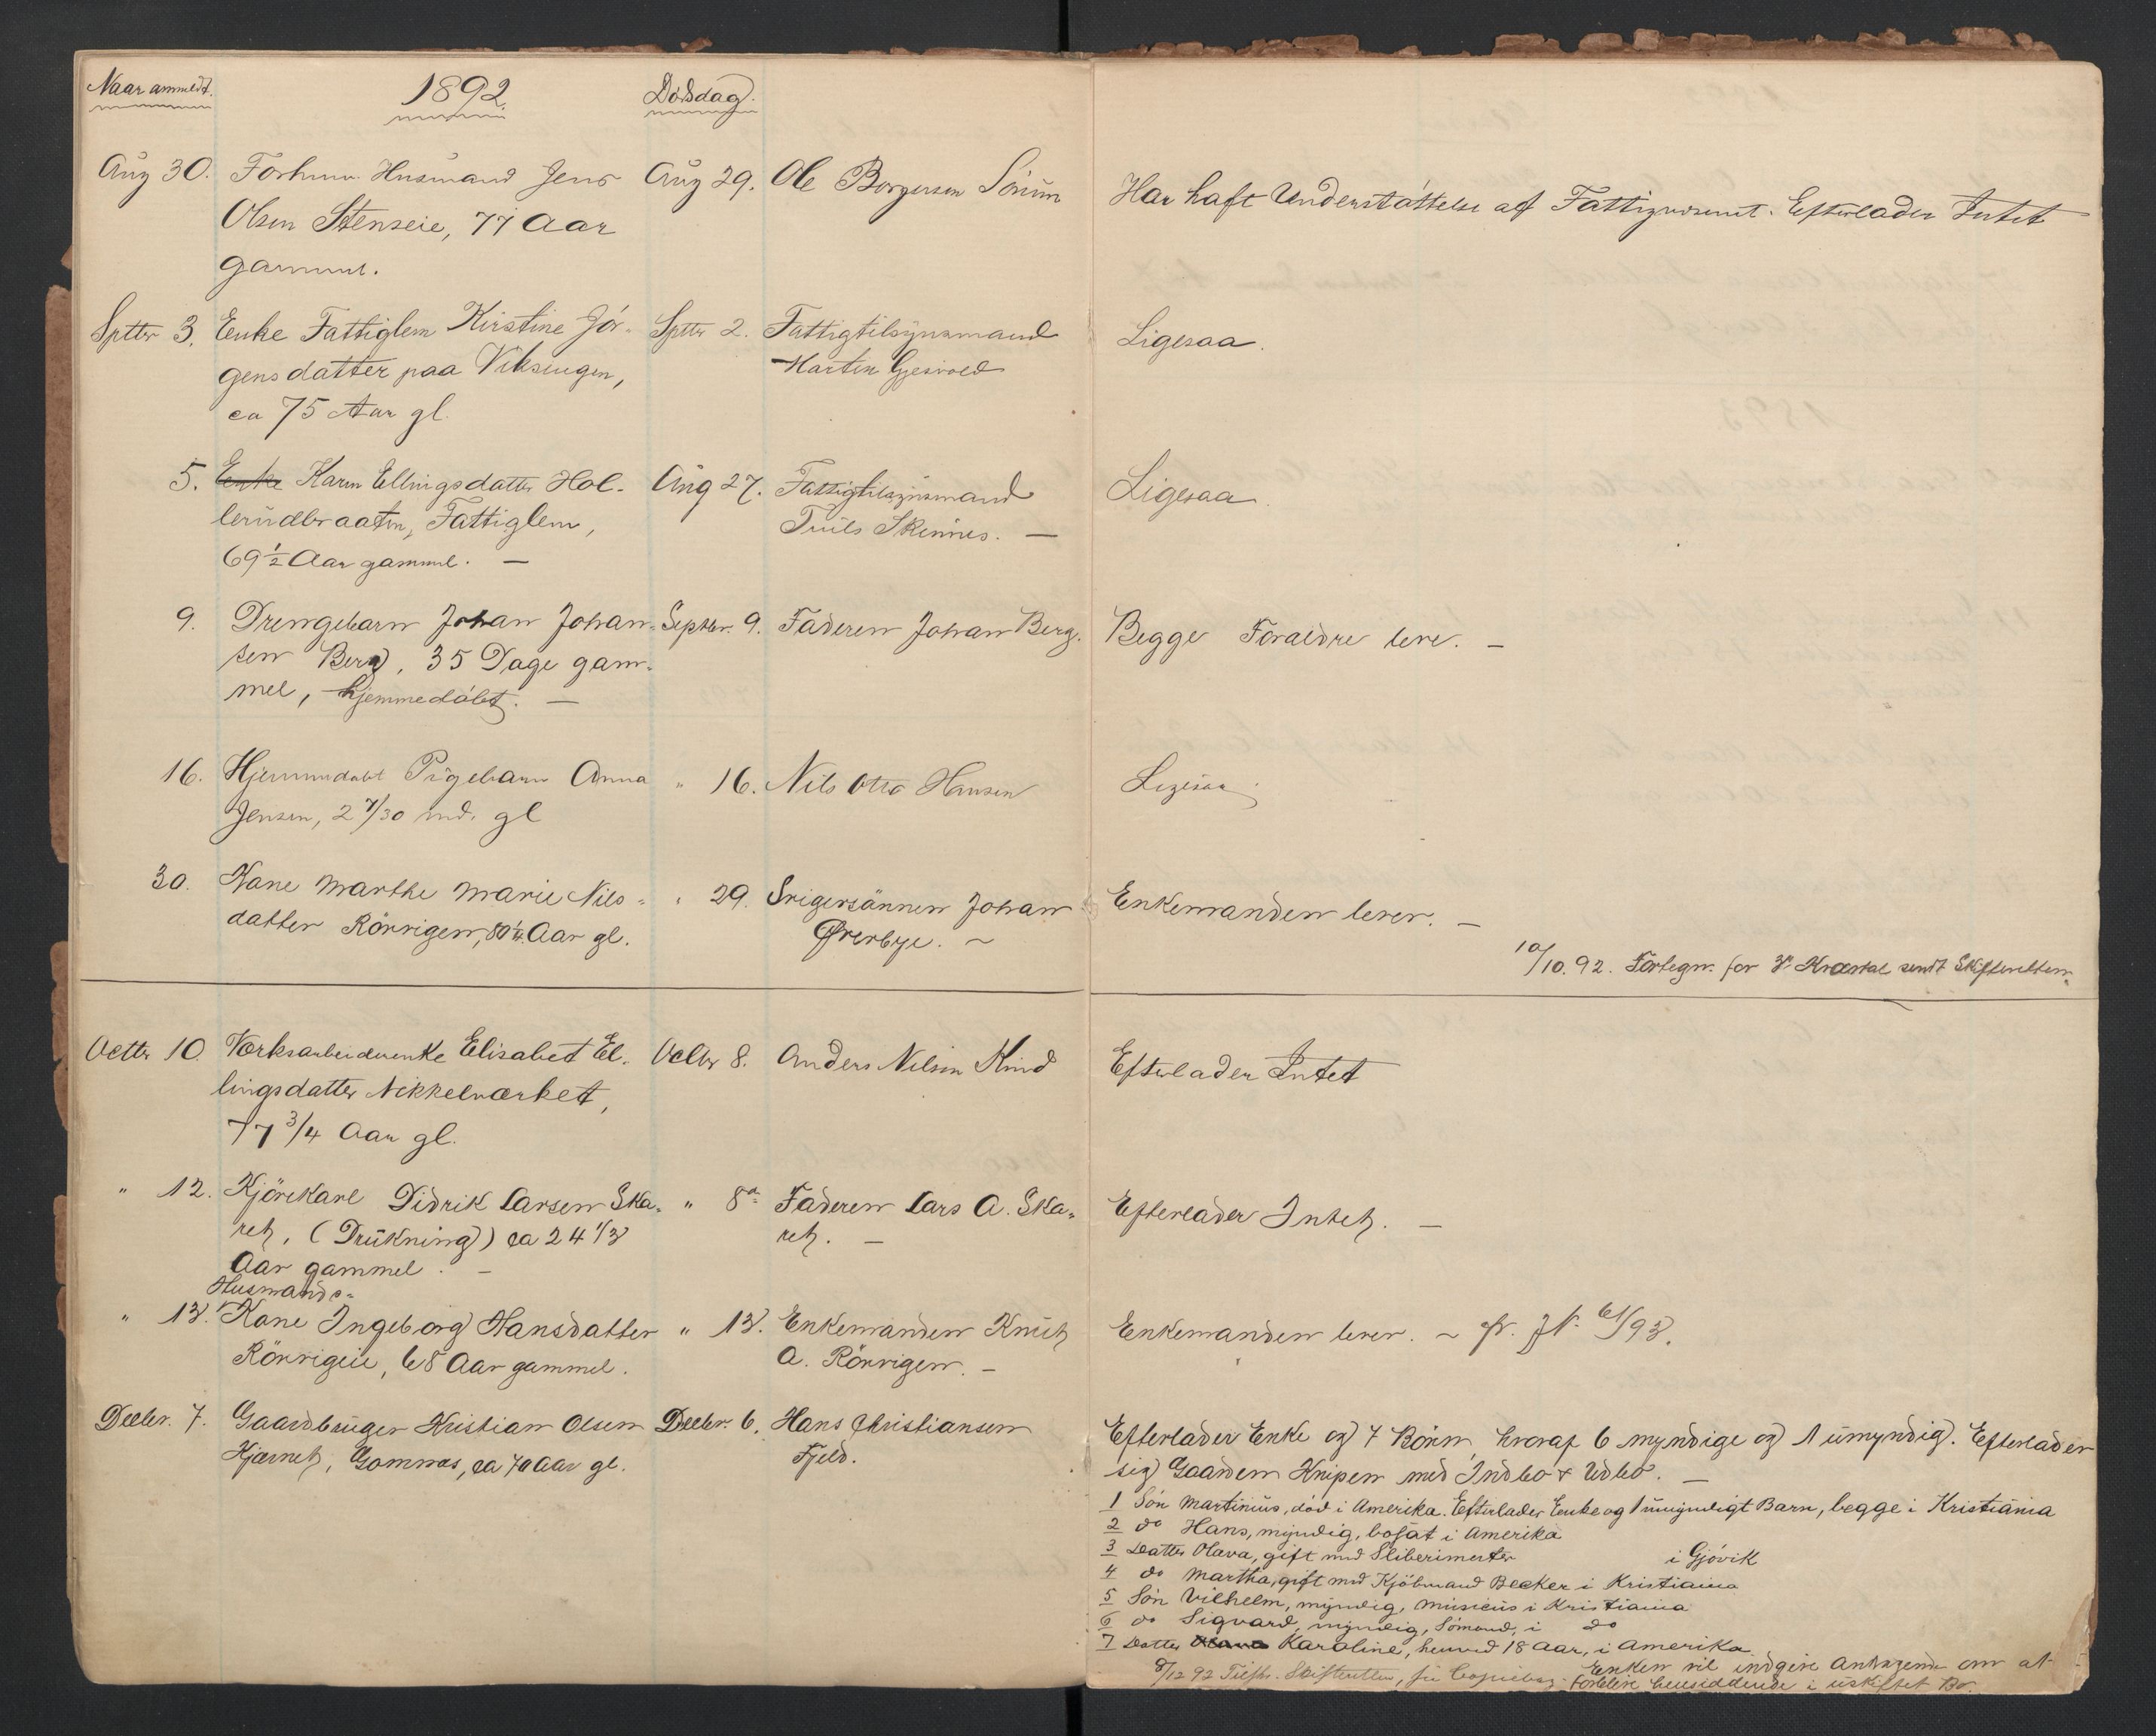 Naar anmeldt. 1892. Dödsdag.
Aug 30. Forhenv. Husmand Jens Aug 29. Ole Borgersen Sörum Har haft Understöttelse af Fattigvæsenet. Efterlader Intet
Olsen Stenseie, 77 Aar
gammel.
Septbr 3. Enke Fattiglem Kirstine Jör- Septbr 2. Fattigtilsynsmand Ligesaa.
gensdatter paa Viksengen, Martin Gjesvold
ca 75 Aar gl.
5. Enke Karen Ellingsdatter Hol- Aug 27. Fattigtilsynsmand Ligesaa.
lerudbraaten, Fattiglem, Truls Skinnes. —
69½ Aar gammel. —
9. Drengebarn Johan Johan- Septbr. 9. Faderen Johan Berg. Begge Foraeldre leve. —
sen Berg, 35 Dage gam-
mel, hjemmedöbt. —
16. Hjemmedöbt Pigebarn Anna " 16. Nils Otto Hansen Ligesaa.
Jensen, 2 7/30 Md. gl
30. Kone Marthe Marie Nils- " 29. Svigersönnen Johan Enkemanden lever. —
datter Rörvigen, 80¼ Aar gl. Øverbye. ~
10/10.92. Fortegn. for 3. Kvartal sendt Skifteretten.
Octbr 10. Værksarbeiderenke Elisabet El- Octbr 8. Anders Nilsen Kind Efterlader Intet
lingsdatter Nikkelværket,
77 3/4 Aar gl.
" 12. Kjörekarl Didrik Larsen Ska- " 8de Faderen Lars A. Ska- Efterlader Intet. —
ret, (Drukning) ca 24 1/3 ret. —
Aar gammel. —
Husmands-
" 13. Kone Ingeborg Hansdatter " 13. Enkemanden Knut Enkemanden lever. ~ cfr. JN. 61/93.
Rörvigeie, 68 Aar gammel. A. Rörvigen. —
Decbr. 7. Gaardbruger Kristian Olsen Decbr. 6. Hans Christiansen Efterlader Enke og 7 Börn, hvoraf 6 myndige og 1 umyndig. Efterlader
Kjærnet, Gomnæs, ca 70 Aar gl. Fjeld. sig Gaarden Knipen med Indbo & Udbo. —
1 Sön Martinius, död i Amerika. Efterlader Enke og 1 umyndigt Barn, begge i Kristiania
2 do Hans, myndig, bosat i Amerika
3 Datter Olava, gift med Sliberimester i Gjövik
4 do Martha, gift med Kjöbmand Becker i Kristiania
5 Sön Vilhelm, myndig, Musicus i Kristiania
6 do Sigvard, myndig, Sömand, i do
7 Datter Karoline, henved 18 Aar, i Amerika
8/12 92 Tilskr. Skifteretten, se Copiebog. Enken vil indgive Andragende om at
forblive hensiddende i uskiftet Bo.